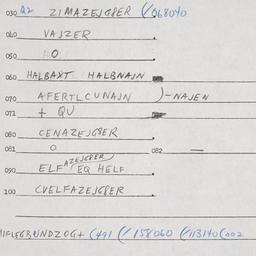 030 Q2 ZIMAZEJGBER (/068040
040 VAJZER
050 0
060 HALBAXT HALBNAJN
070 AFERTLCUNAJN )-NAJEN
071 + QU
080 CENAZEJGBER
081 0 082 —
090 ELF AZEJGBER EQ HELF
100 CVELFAZEJGBER
(491 (/158060 (/113140(002